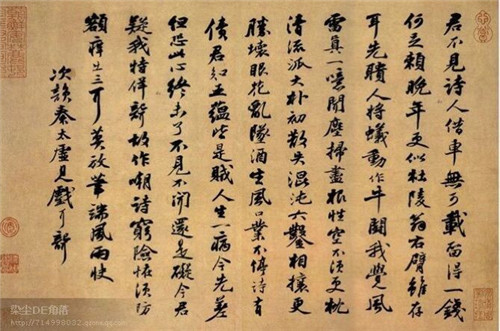 君不見詩人借車無可載留得一錢
何足賴晚年更似杜陵翁右臂雖存
耳先聵人將蟻動作牛鬭我覺風
雷真一噫聞塵掃盡根性空不須更枕
清流派大朴初散失混沌六鑿相攘更
勝壞眼花亂墜酒生風口業不停詩有
債君知五蘊皆是賊人生一病今先差
但恐此心終未了不見不聞還是礙今君
疑我特佯聾故作嘲詩窮險怪須防
額癢出三耳莫放筆端風雨快
次韻秦太虛見戲耳聾
染尘DE角落
http://714998032.qzone.qq.com